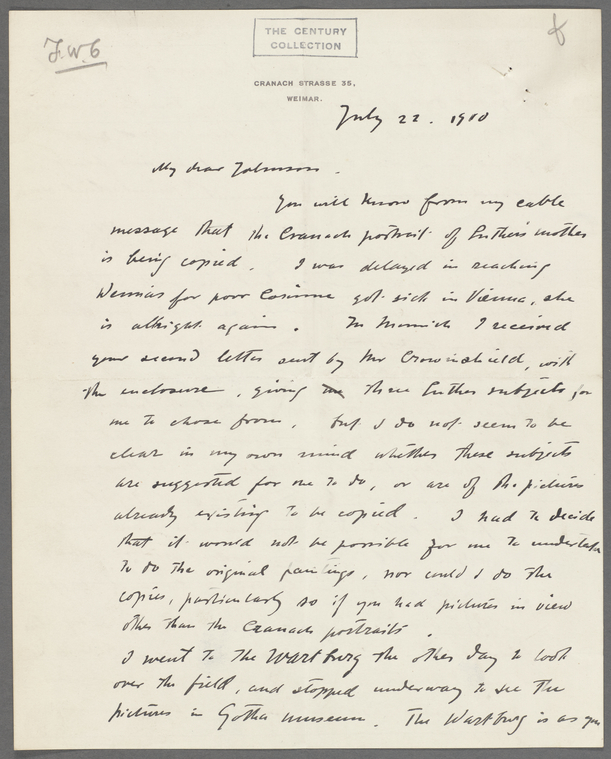 F.W.C
THE CENTURY
COLLECTION
CRANACH STRASSE 35,
WEIMAR.
July 22. 1910
My dear Johnson.
You will know from my cable
message that the Cranach portrait of Luther's mother
is being copied. I was delayed in reaching
Weimar for poor Corinne got sick in Vienna, she
is allright again. In Munich I received
your second letter sent by Mr Crowinshield, with
the enclosure, giving three Luther subjects for
me to chose from, but I do not seem to be
clear in my own mind whether these subjects
are suggested for me to do, or are of the pictures
already existing to be copied. I had to decide
that it would not be possible for me to undertake
to do the original paintings, nor could I do the
copies, particularly so if you had pictures in view
other than the Cranach portraits.
I went to the Wartburg the other day to look
over the field, and stopped underway to see the
pictures in Gotha museum. The Wartburg is as you